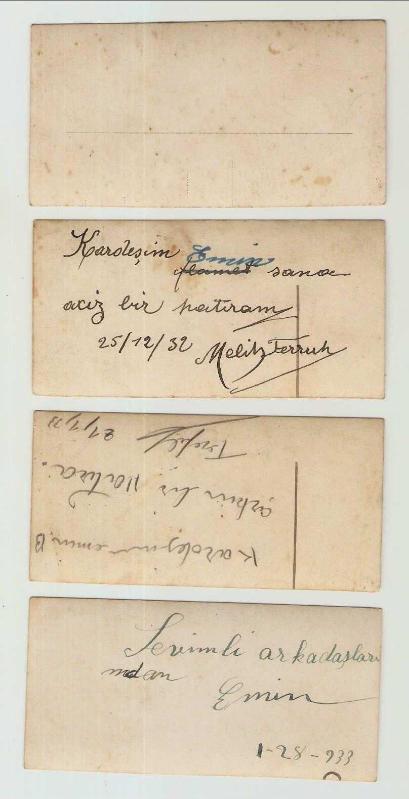 Kardeşim Emin
sana
aciz bir hatıram
25/12/32 Melih Ferruh
Kardeşim Emin. B
bir Hatıra.
Sevimli arkadaşları
mdan
Emin
1-28-933